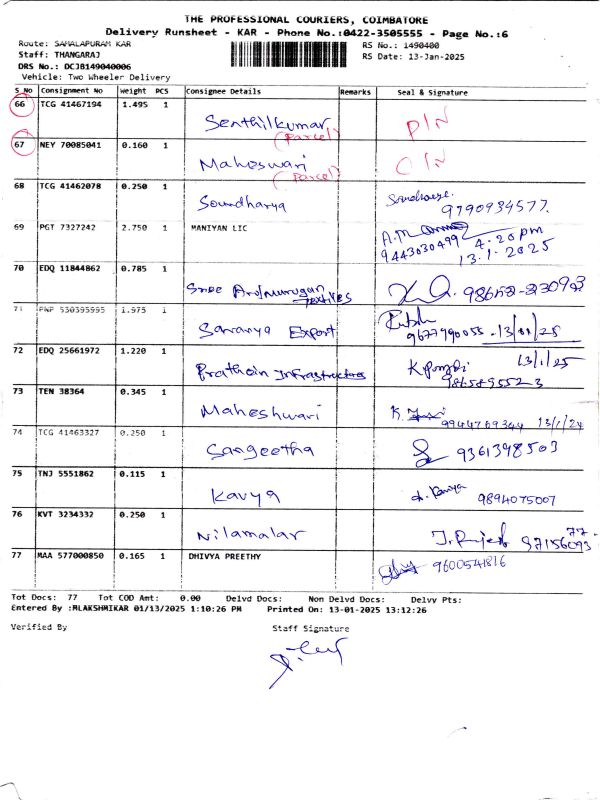 THE PROFESSIONAL COURIERS, COIMBATORE
Delivery Runsheet - KAR - Phone No.:0422-3505555 - Page No.:6
Route: SAMALAPURAM KAR RS No.: 1490400
Staff: THANGARAJ RS Date: 13-Jan-2025
DRS No.: DCJB149040006
Vehicle: Two Wheeler Delivery
S_No Consignment No Weight PCS Consignee Details Remarks Seal & Signature
66 TCG 41467194 1.495 1 Senthilkumar (Parcel)
67 NEY 70085041 0.160 1 Maheswari (Parcel)
68 TCG 41462078 0.250 1 Soundharya 9790934577.
69 PGT 7327242 2.750 1 MANIYAN LIC A.M 9443030499 4:20pm 13.1.2025
70 EDQ 11844862 0.785 1 Sree
71 PNP 530395995 1.975 1 Saranya Export 9677790055 -13/01/25
72 EDQ 25661972 1.220 1 Infrastructres 13/1/25
73 TEN 38364 0.345 1 Maheshwari K. 9944769344 13/1/24
74 TCG 41463327 0.250 1 Sangeetha 9361398503
75 TNJ 5551862 0.115 1 Kavya 9894075007
76 KVT 3234332 0.250 1 Nilamalar
77 MAA 577000850 0.165 1 DHIVYA PREETHY 9600541816
Tot Docs: 77 Tot COD Amt: 0.00 Delvd Docs: Non Delvd Docs: Delvy Pts:
Entered By :MLAKSHMIKAR 01/13/2025 1:10:26 PM Printed On: 13-01-2025 13:12:26
Verified By Staff Signature